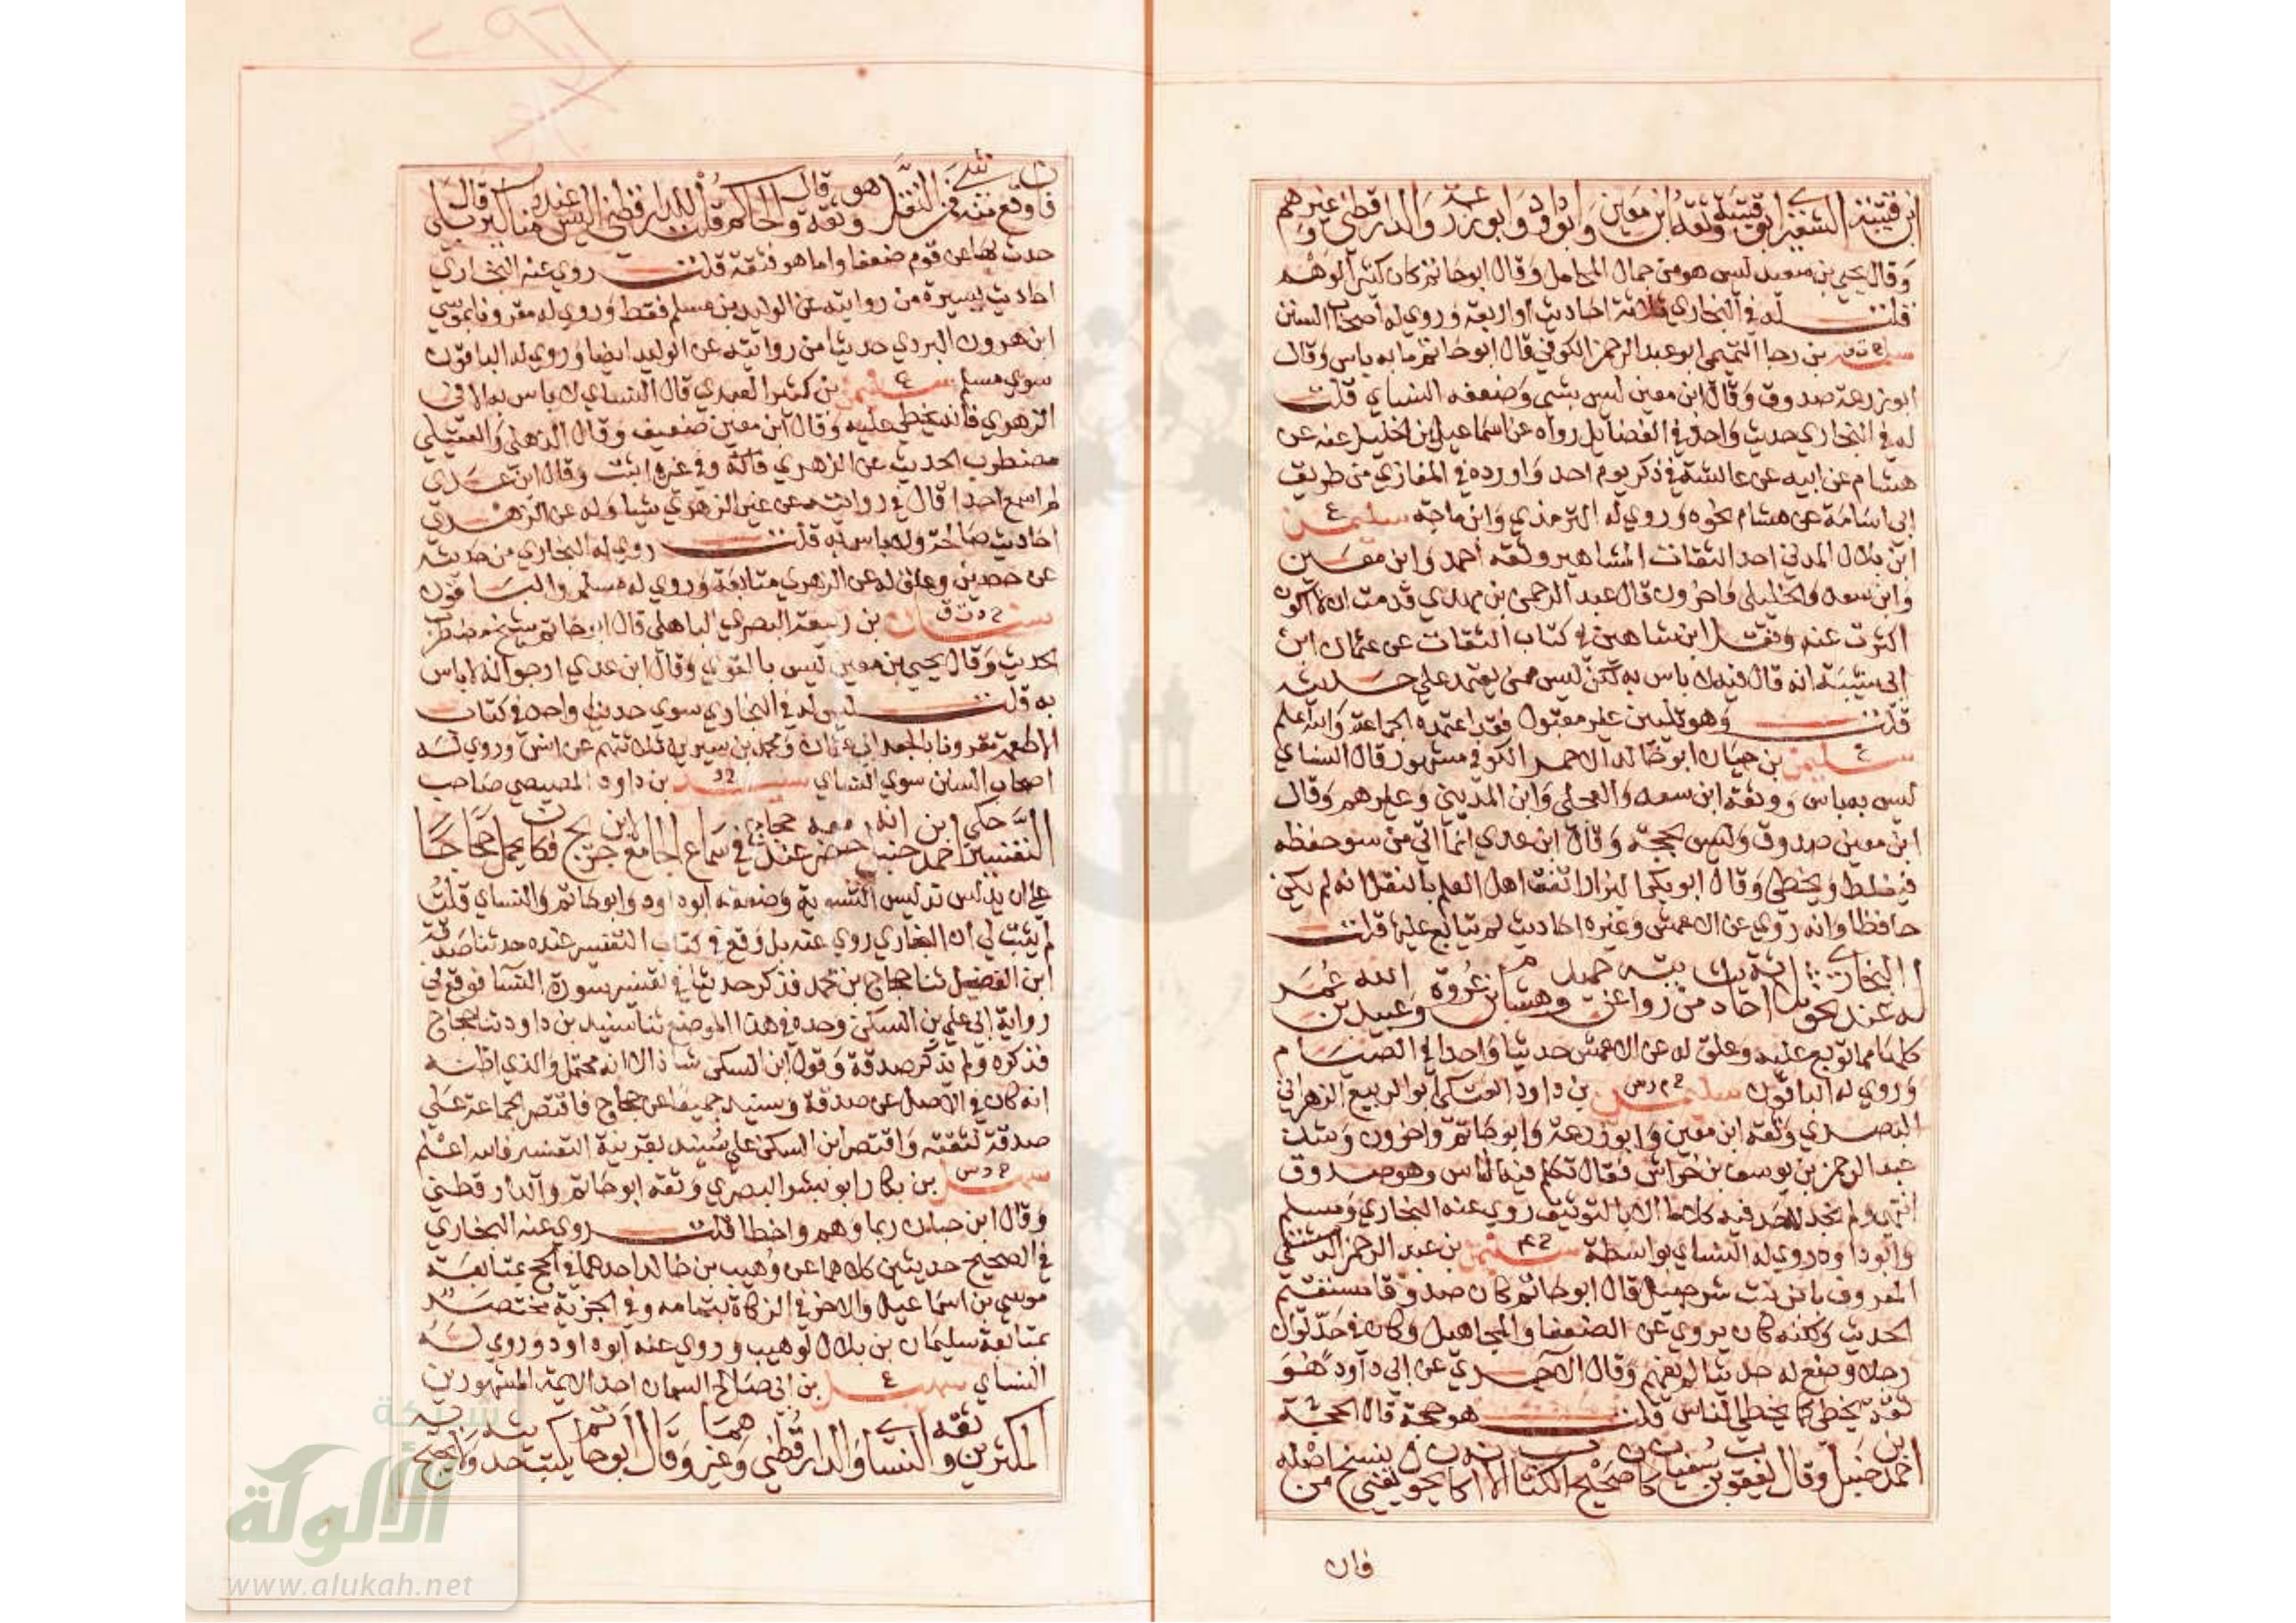 ابن قتيبة الشعيري ابو قتيبة وثقه ابن معين وابو داود وابو زرعة والدارقطني وغيرهم
وقال يحيى بن سعيد ليس هو من جمال المحامل وقال ابو حاتم كان كثير الوهم
قلت له في البخاري ثلاثة احاديث او اربعة وروي له اصحاب السنن
بن رجا التميمي ابو عبد الرحمن الكوفي قال ابو حاتم ما به باس وقال
ابو زرعة صدوق وقال ابن معين ليس بشي وضعفه النساي قلت
له في البخاري حديث واحد في الفضايل رواه عن اسماعيل بن الخليل عنه عن
هشام عن ابيه عن عائشة في ذكر يوم احد واورده في المغازي من طريق
ابي اسامة عن هشام نحوه وروي له الترمذي وابن ماجة ع سليمن
ابن بلال المدني احد الثقات المشاهير وثقه احمد وابن معين
وابن سعد والخليلي واخرون قال عبد الرحمن بن مهدي ندمت ان لا اكون
اكثرت عنه ونقل ابن شاهين في كتاب الثقات عن عثمان ابن
ابي شيبة انه قال فيه لا باس به لكن ليس ممن يعتمد علي حديثه
قلت وهو تليين غير مقبول فقد اعتمده الجماعة والله اعلم
ع سليمن بن حيان ابو خالد الاحمر الكوفي مشهور قال النساي
ليس به باس ووثقه ابن سعد والعجلي وابن المديني وغيرهم وقال
ابن معين صدوق وليس بحجة وقال ابن عدي انما اتي من سو حفظه
فيغلط ويخطي وقال ابو بكر البزار اتفق اهل العلم بالنقل انه لم يكن
حافظا وانه روي عن الاعمش وغيره احاديث لم يتابع عليها قلت
له عند البخاري نحو ثلاثة احاديث من روايته عن حميد وهشام بن عروة وعبيد الله بن عمر
كلها مما توبع عليه وعلق له عن الاعمش حديثا واحدا في الصيام
وروي له الباقون خ م د س سليمن بن داود العتكي ابو الربيع الزهراني
البصري وثقه ابن معين وابو زرعة وابو حاتم واخرون وشذ
عبد الرحمن بن يوسف بن خراش فقال تكلم فيه الناس وهو صدوق
انتهي ولم نجد لاحد فيه كلاما الا بالتوثيق روي عنه البخاري ومسلم
وابو داود وروي له النساي بواسطة سليمن بن عبد الرحمن الدمشقي
المعروف بابن بنت شرحبيل قال ابو حاتم كان صدوقا مستقيم
الحديث ولكنه كان يروي عن الضعفا والمجاهيل وكان في حد لو ان
رجلا وضع له حديثا لم يفهم وقال الآجري عن ابي داود هو
ثقة يخطي كما يخطي الناس قلت هو حجة قال الحجة
احمد بن حنبل وقال يعقوب بن سفيان كان صحيح الكتاب الا انه كان يحول يعني ينسخ من اصله
فان
فان وقع منه شي فمن النقل وهو ثقة وقال الحاكم قلت للدارقطني اليس عنده مناكير قال بلي
حدث بها عن قوم ضعفا واما هو فثقة قلت روي عنه البخاري
احاديث يسيرة من روايته عن الوليد بن مسلم فقط وروي له مقرونا بموسي
ابن هرون البردي حديثا من روايته عن الوليد ايضا وروي له الباقون
سوي مسلم ع سليمن بن كثير العبدي قال النساي لا باس به الا في
الزهري فانه يخطي عليه وقال ابن معين ضعيف وقال الذهلي والعقيلي
مضطرب الحديث عن الزهري وفي غيره اثبت وقال ابن عدي
لم اسمع احدا قال في روايته عن غير الزهري شيا وله عن الزهري
احاديث صالحة ولا باس به قلت روي له البخاري من حديثه
عن حصين وعلق له عن الزهري متابعة وروي له مسلم والباقون
خ د ت ق سنان بن ربيعة البصري الباهلي قال ابو حاتم شيخ مضطرب
الحديث وقال يحيي بن معين ليس بالقوي وقال ابن عدي ارجو انه لا باس
به قلت ليس له في البخاري سوي حديث واحد في كتاب
الاطعمة مقرونا بالجعد ابي عثمان ومحمد بن سيرين ثلاثتهم عن انس وروي له
اصحاب السنن سوي النساي سنيد بن داود المصيصي صاحب
التفسير حكي احمد بن حنبل انه حضر معه عند حجاج في سماع الجامع لابن جريج فكان يحمل حجاجا
علي ان يدلس تدليس التسوية وضعفه ابو داود وابو حاتم والنساي قلت
لم يثبت لي ان البخاري روي عنه بل وقع في كتاب التفسير عنده حدثنا صدقة
ابن الفضل ثنا حجاج بن محمد فذكر حديثا في تفسير سورة النسا فوقع في
رواية ابي علي بن السكن وحده في هذا الموضع ثنا سنيد بن داود ثنا حجاج
فذكره ولم يذكر صدقة وقول ابن السكن شاذ الا انه محتمل والذي اظنه
انه كان في الاصل عن صدقة وسنيد جميعا عن حجاج فاقتصر الجماعة علي
صدقة لثقته واقتصر ابن السكن علي سنيد بقرينة التفسير فالله اعلم
خ د س سهل بن بكار ابو بشر البصري وثقه ابو حاتم والدارقطني
وقال ابن حبان ربما وهم واخطا قلت روي عنه البخاري
في الصحيح حديثين كلاهما عن وهيب بن خالد احدهما في الحج بمتابعة
موسي بن اسماعيل والاخر في الزكاة بتمامه وفي الجزية مختصرا
بمتابعة سليمان بن بلال لوهيب وروي عنه ابو داود وروي له
النساي ع سهيل بن ابي صالح السمان احد الايمة المشهورين
المكثرين وثقه النساي والدارقطني وغيرهما وقال ابو حاتم يكتب حديثه ولا يحتج
شبكة
الألوكة
www.alukah.net